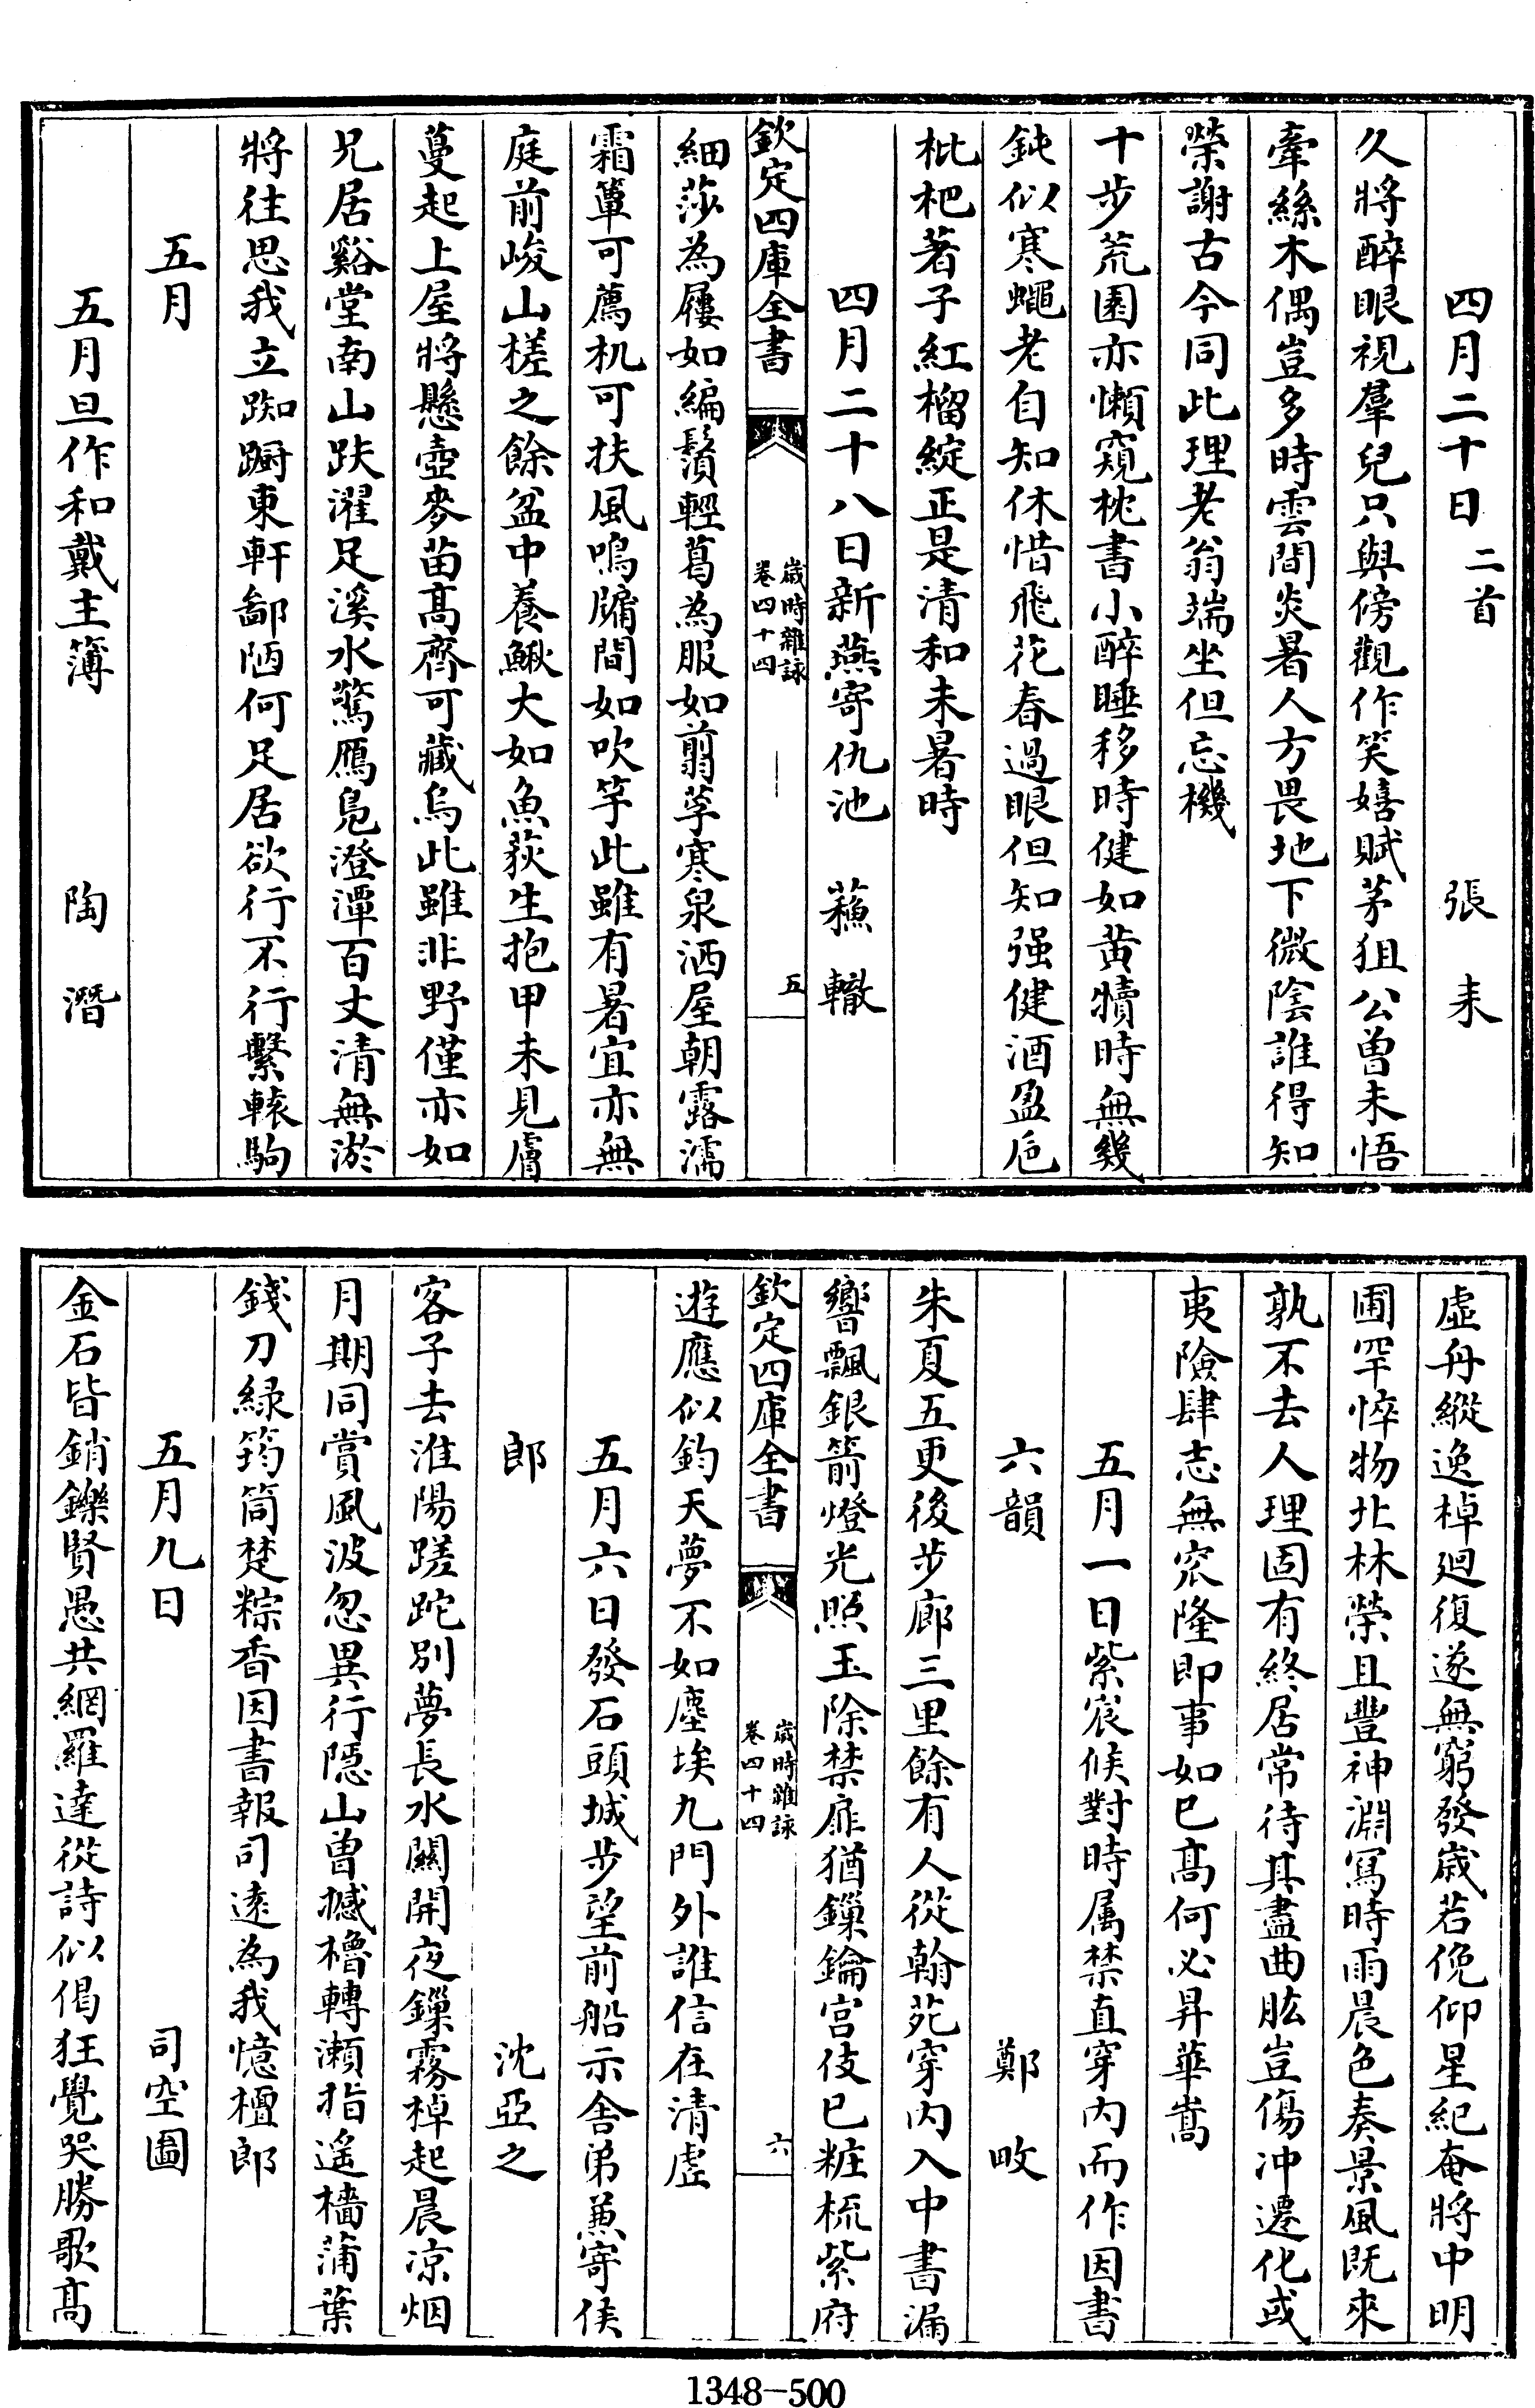 四月二十日二首 張耒
久將醉眼視羣兒只與傍觀作笑嬉賦茅狙公曽未悟
牽絲木偶豈多時雲間炎暑人方畏地下微陰誰得知
榮謝古今同此理老翁端坐但忘機
十步荒園亦懶窺枕書小醉睡移時健如黄犢時無幾
鈍似寒蠅老自知休惜飛花春過眼但知强健酒盈巵
枇杷著子紅榴綻正是清和未暑時
四月二十八日新燕寄仇池 蘓轍
欽定四庫全書 歳時雜詠卷四十四 五
細莎為屨如編鬚輕葛為服如翦莩寒泉洒屋朝露濡
霜簟可薦机可扶風鳴牖間如吹竽此雖有暑宜亦無
庭前峻山槎之餘盆中養鰍大如魚荻生抱甲未見膚
蔓起上屋將懸壺麥苗髙齊可藏烏此雖非野僅亦如
兄居谿堂南山趺濯足溪水驚鴈鳬澄潭百丈清無淤
將往思我立踟蹰東軒鄙陋何足居欲行不行繫轅駒
五月
五月旦作和戴主簿 陶潛
虛舟縱逸棹廻復遂無窮發歳若俛仰星紀奄將中明
圃罕悴物北林榮且豐神淵寫時雨晨色奏景風既來
孰不去人理固有終居常待其盡曲肱豈傷冲遷化或
夷險肆志無窊隆即事如已髙何必昇華嵩
五月一日紫宸候對時属禁直穿内而作因書
六韻 鄭畋
朱夏五更後步廊三里餘有人從翰苑穿内入中書漏
響飄銀箭燈光照玉除禁扉猶鏁鑰宫伎已粧梳紫府
欽定四庫全書 歳時雜詠卷四十四 六
遊應似鈞天夢不如塵埃九門外誰信在清虚
五月六日發石頭城步望前船示舎弟兼寄侯
郎 沈亞之
客子去淮陽蹉跎别夢長水關開夜鏁霧棹起晨凉烟
月期同賞風波忽異行隠山曽撼櫓轉瀬指遥檣蒲葉
錢刀緑筠筒楚粽香因書報司逺為我憶檀郎
五月九日 司空圖
金石皆銷鑠賢愚共網羅達從詩似偈狂覺哭勝歌髙
1348-500